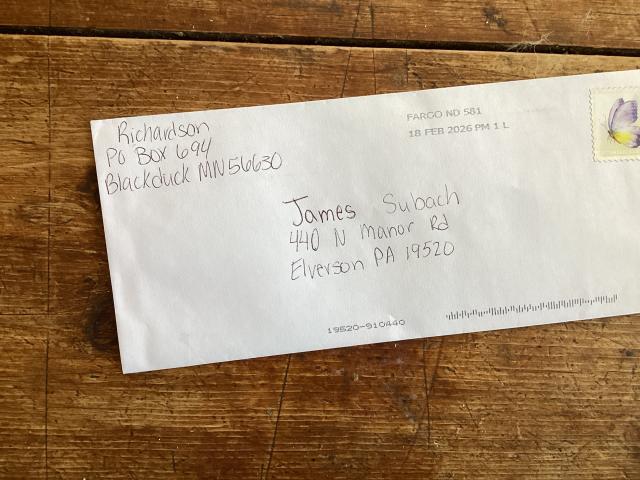 Richardson
PO BOX 694
Blackduck MN 56630
FARGO ND 581
18 FEB 2026 PM 1 L
James Subach
440 N Manor Rd
Elverson PA 19520
19520-910440